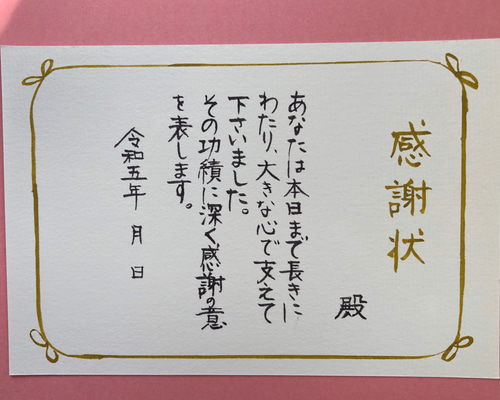 感謝状
殿
あなたは本日まで長きに
わたり、大きな心で支えて
下さいました。
その功績に深く感謝の意
を表します。
令和五年 月 日